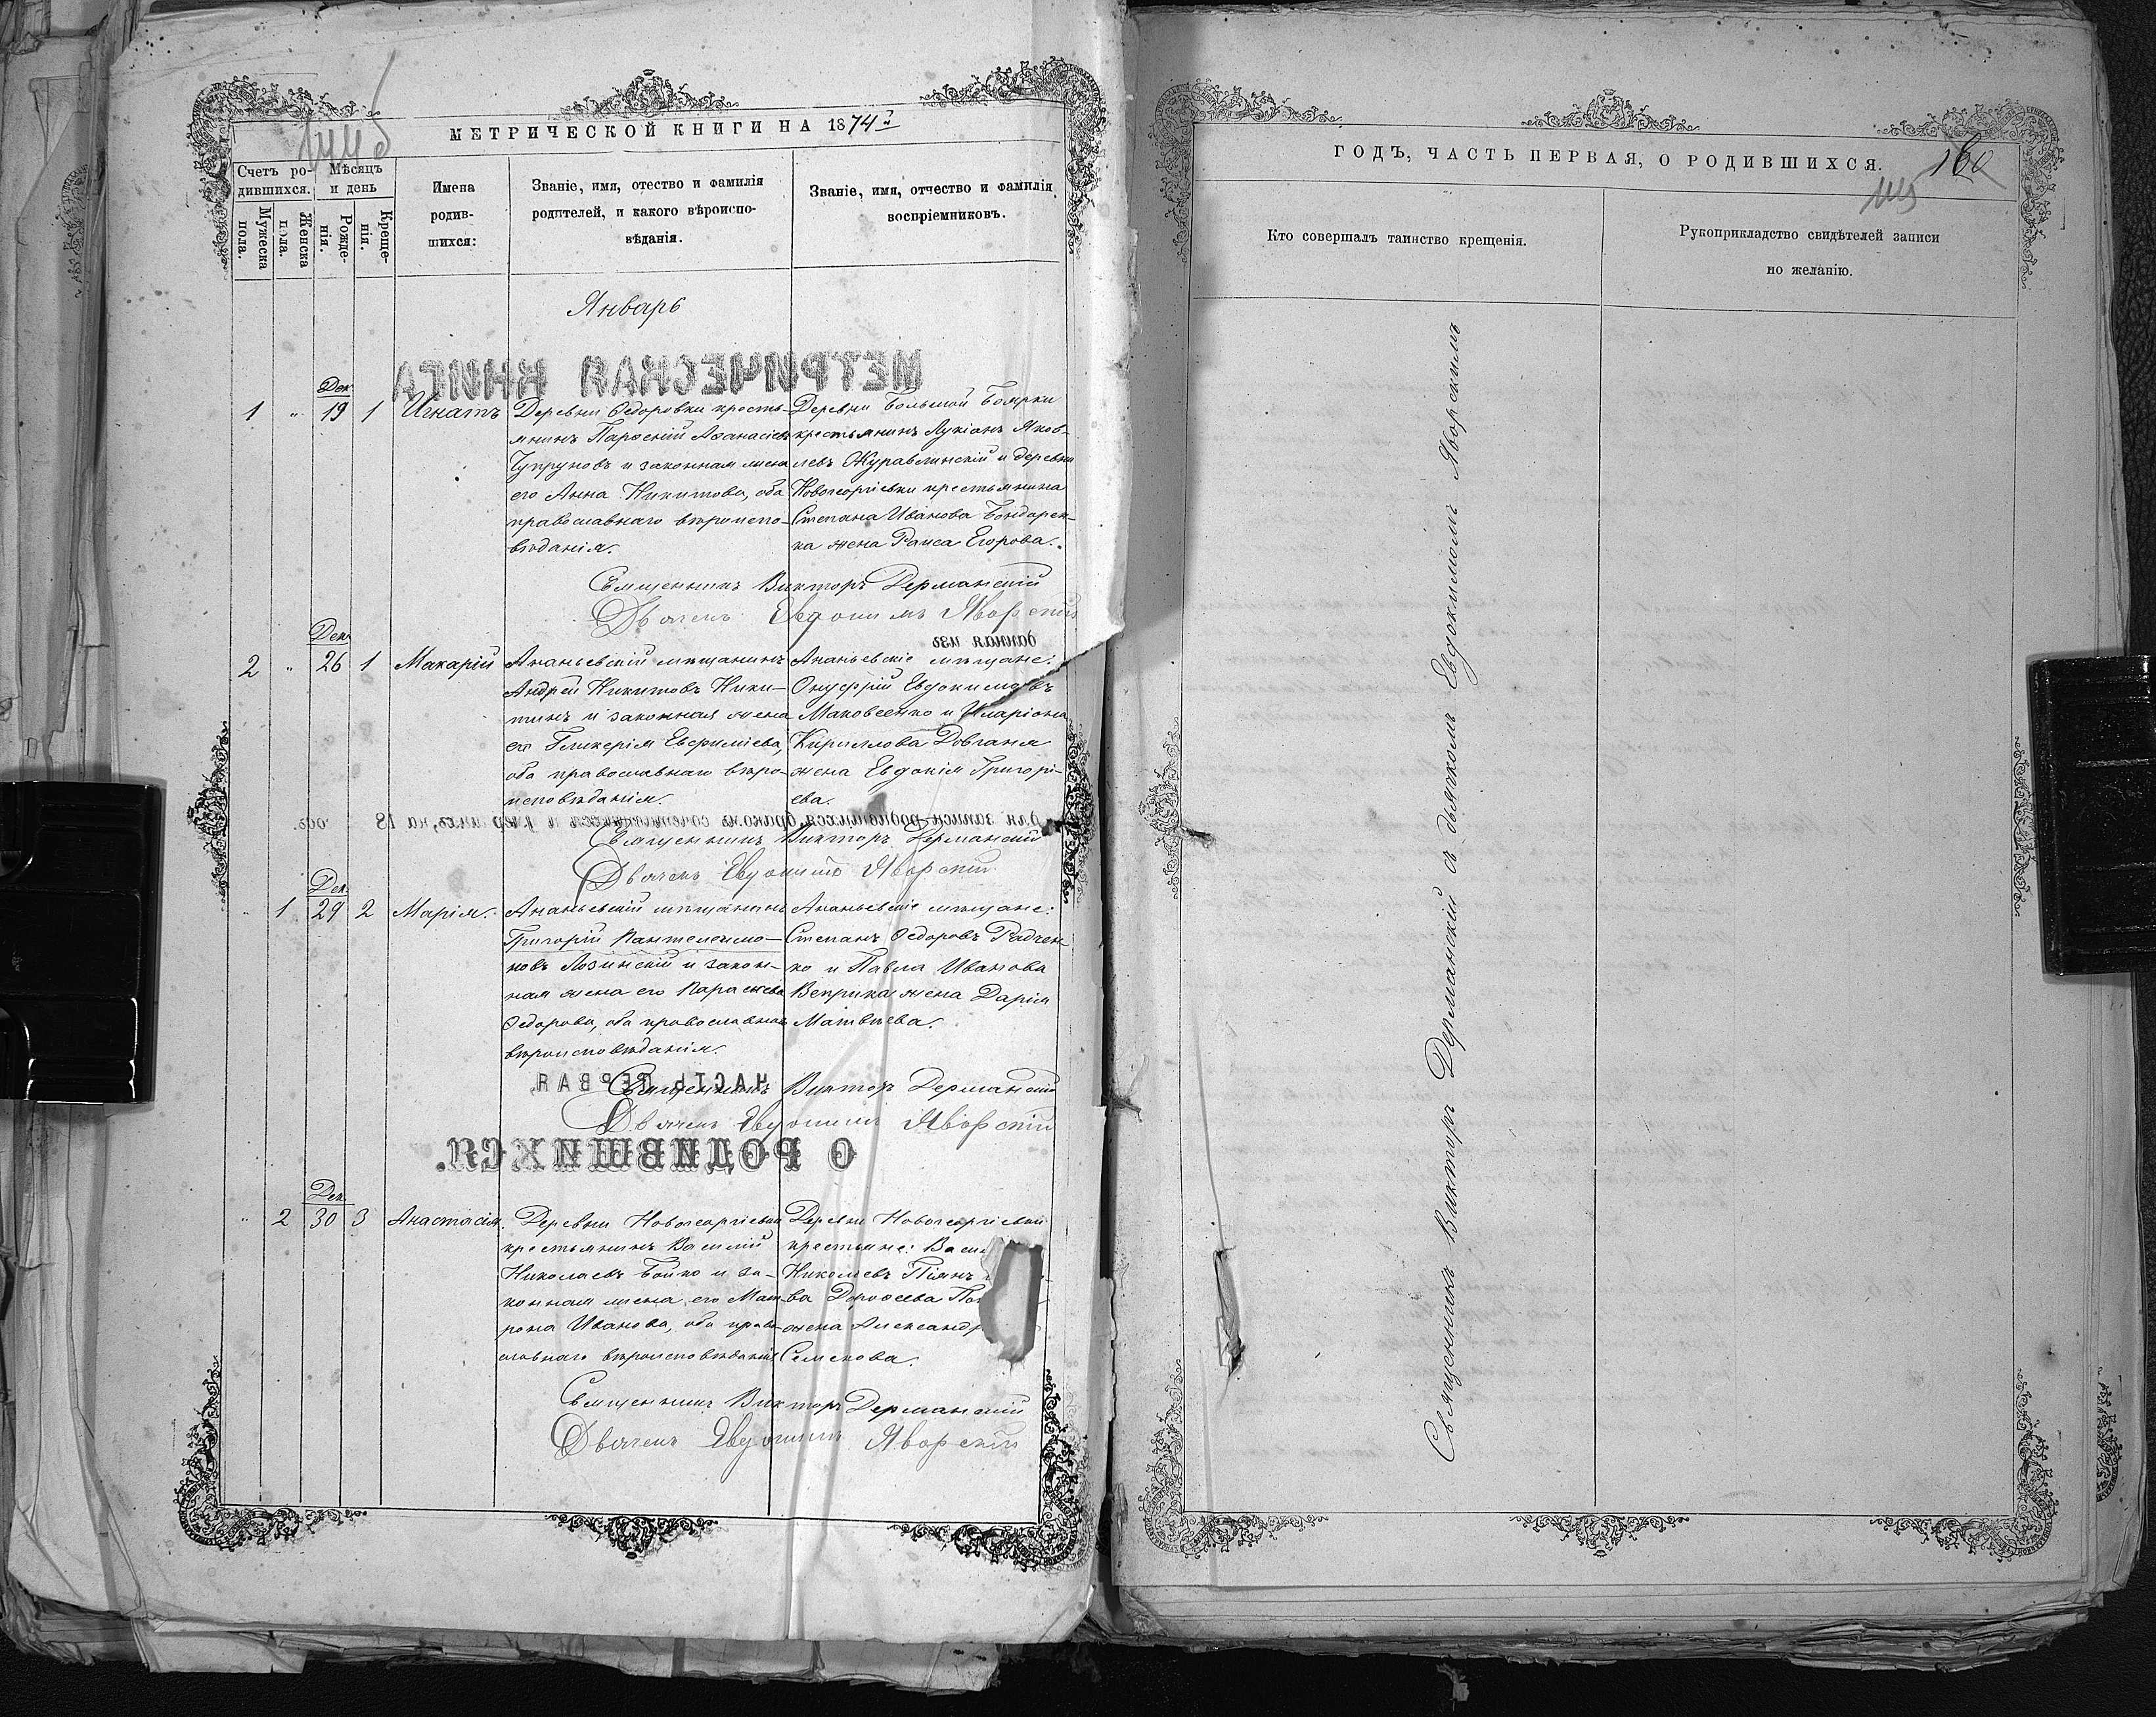 МЕТРИЧЕСКОЙ КНИГИ НА 1874
Счетъ ро-
дившихся.
Мѣсяцъ
и день
Мужеска
пола.
Женска
пола.
Рожде-
нія.
Креще-
нія.
Имена
родив-
шихся:
Званіе, имя, отество и фамилія
родителей, и какого вѣроиспо-
вѣданія.
Званіе, имя, отчество и фамилія
воспріемниковъ.
Январь
МЕТРИЧЕСКАЯ КНИГА
Дек.
1 " 19 1 Игнатъ
Деревни Ѳедоровки кресть-
янинъ Парѳеній Аѳанасіевъ
Чупруновъ и законная жена
его Анна Никитова, оба
православнаго вѣроиспо-
вѣданія.
Деревни Большой Боярки
крестьянинъ Лукіанъ Яков-
левъ Журавлинскій и деревни
Новогеоргіевки крестьянина
Степана Иванова Бондарен-
ка жена Раиса Егорова.
Священникъ Викторъ Дерманскій
Дьячекъ Евдокимъ Яворскій
данная изъ
Дек.
2 " 26 1 Макарій
Ананьевскій мѣщанинъ
Андрей Никитовъ Ники-
тинъ и законная жена
его Гликерія Евфиміева,
оба православнаго вѣро-
исповѣданія.
Ананьевскіе мѣщане:
Онуфрій Евдокимовъ
Маковеенко и Иларіона
Кириллова Довганя
жена Евдокія Григорі-
ева.
для записи родившихся, бракомъ сочетавшихся и умершихъ, на 18 годъ.
Священникъ Викторъ Дерманскій
Дьячекъ Евдокимъ Яворскій
Дек.
" 1 29 2 Марія.
Ананьевскій мѣщанинъ
Григорій Пантелеимо-
новъ Лозинскій и закон-
ная жена его Параскева
Ѳедорова, оба православнаго
вѣроисповѣданія.
Ананьевскіе мѣщане:
Степанъ Ѳедоровъ Радчен-
ко и Павла Иванова
Веприка жена Дарія
Матвѣева.
ЧАСТЬ ПЕРВАЯ,
Священникъ Викторъ Дерманскій
Дьячекъ Евдокимъ Яворскій
О РОДИВШИХСЯ.
Дек.
" 2 30 3 Анастасія.
Деревни Новогеоргіевки
крестьянинъ Василій
Николаевъ Бойко и за-
конная жена его Мат-
рона Иванова, оба право-
славнаго вѣроисповѣданія
Деревни Новогеоргіевки
крестьяне: Васи
Николаевъ Піянъ
ва Дороѳеева
жена Александр
Семенова.
Священникъ Викторъ Дерманскій
Дьячекъ Евдокимъ Яворскій
ГОДЪ, ЧАСТЬ ПЕРВАЯ, О РОДИВШИХСЯ.
160
Кто совершалъ таинство крещенія.
Рукоприкладство свидѣтелей записи
по желанію.
Священникъ Викторъ Дерманскій съ дьякомъ Евдокимомъ Яворскимъ